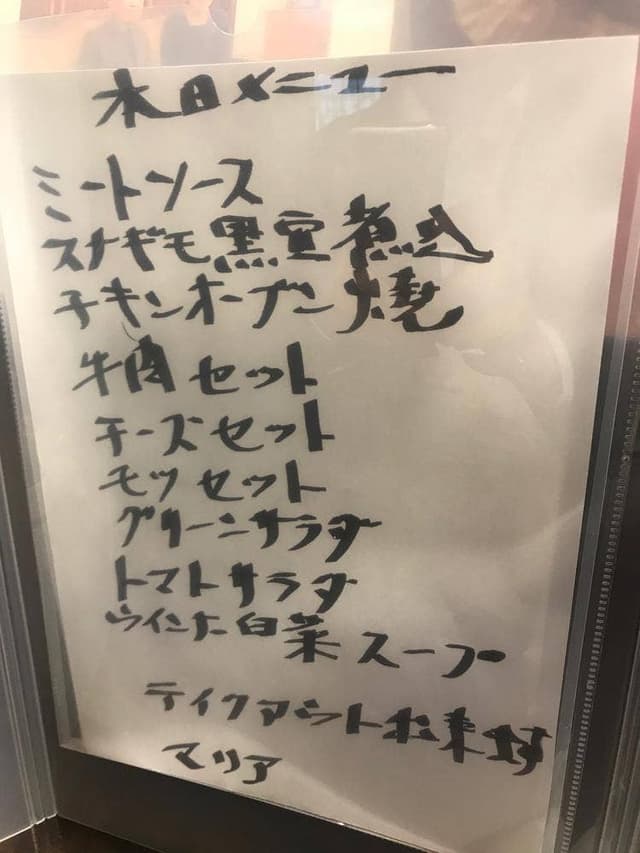 本日メニュー
ミートソース
スナギモ黒豆煮込
チキンオーブン焼
牛肉セット
チーズセット
モツセット
グリーンサラダ
トマトサラダ
ウインナー白菜スープ
テイクアウトお来ます
マリア